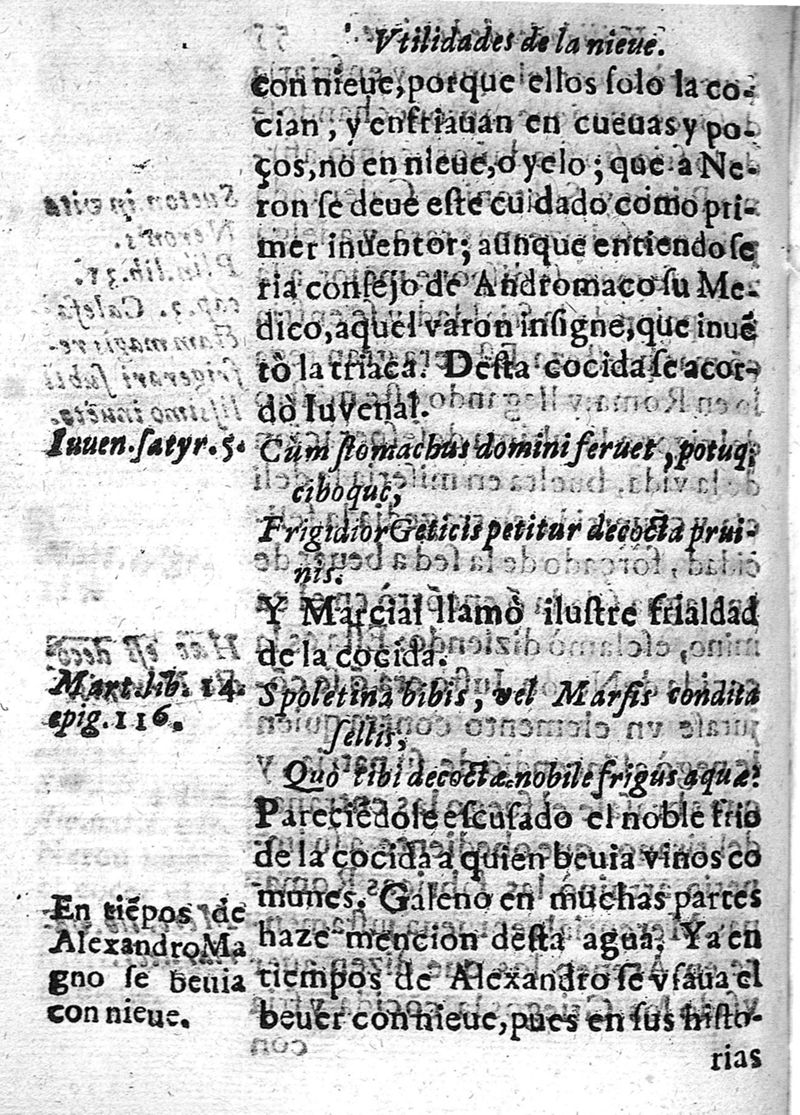 Vtilidades de la nieue.
con nieue, porque ellos ſolo la co-
cian, y enfriauan en cueuas y po-
ços, no en nieue, o yelo; que a Ne-
ron ſe deue eſte cuidado como pri-
mer inuentor; aunque entiendo ſe
ria conſejo de Andromaco ſu Me-
dico, aquel varon inſigne, que inuẽ
tò la triaca. Deſta cocida ſe acor-
dò Iuvenal.
Iuuen. ſatyr. 5.
Cum ſtomachus domini feruet, potuq;
ciboque,
Frigidior Geticis petitur decocta prui-
nis.
Y Marcial llamò iluſtre frialdad
de la cocida.
Mart. lib. 14.
epig. 116.
Spoletina bibis, vel Marſis condita
ſellis,
Quo tibi decoctæ nobile frigus aquæ?
Pareciẽdole eſcuſado el noble frio
de la cocida a quien beuia vinos co
munes. Galeno en muchas partes
haze mencion deſta agua, Ya en
tiempos de Alexandro ſe vſaua el
beuer con nieue, pues en ſus hiſto-
En tiẽpos de
Alexandro Ma
gno se beuia
con nieue.
rias